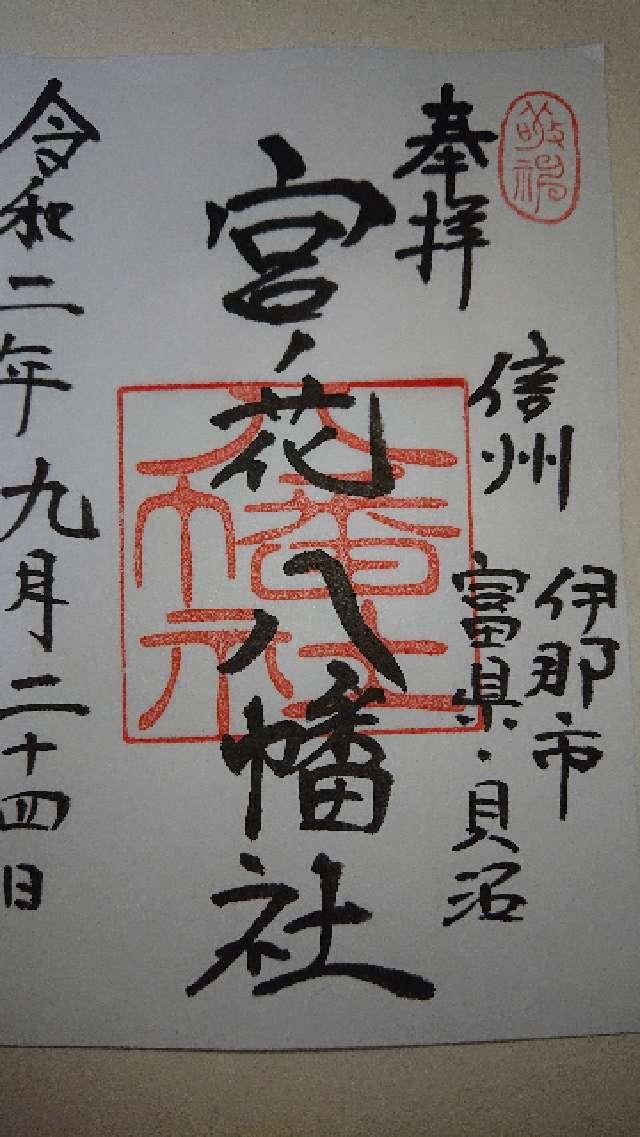 敬神
奉拝
信州
伊那市
富県・貝沼
宮ノ花八幡社
八幡社
令和二年九月二十四日